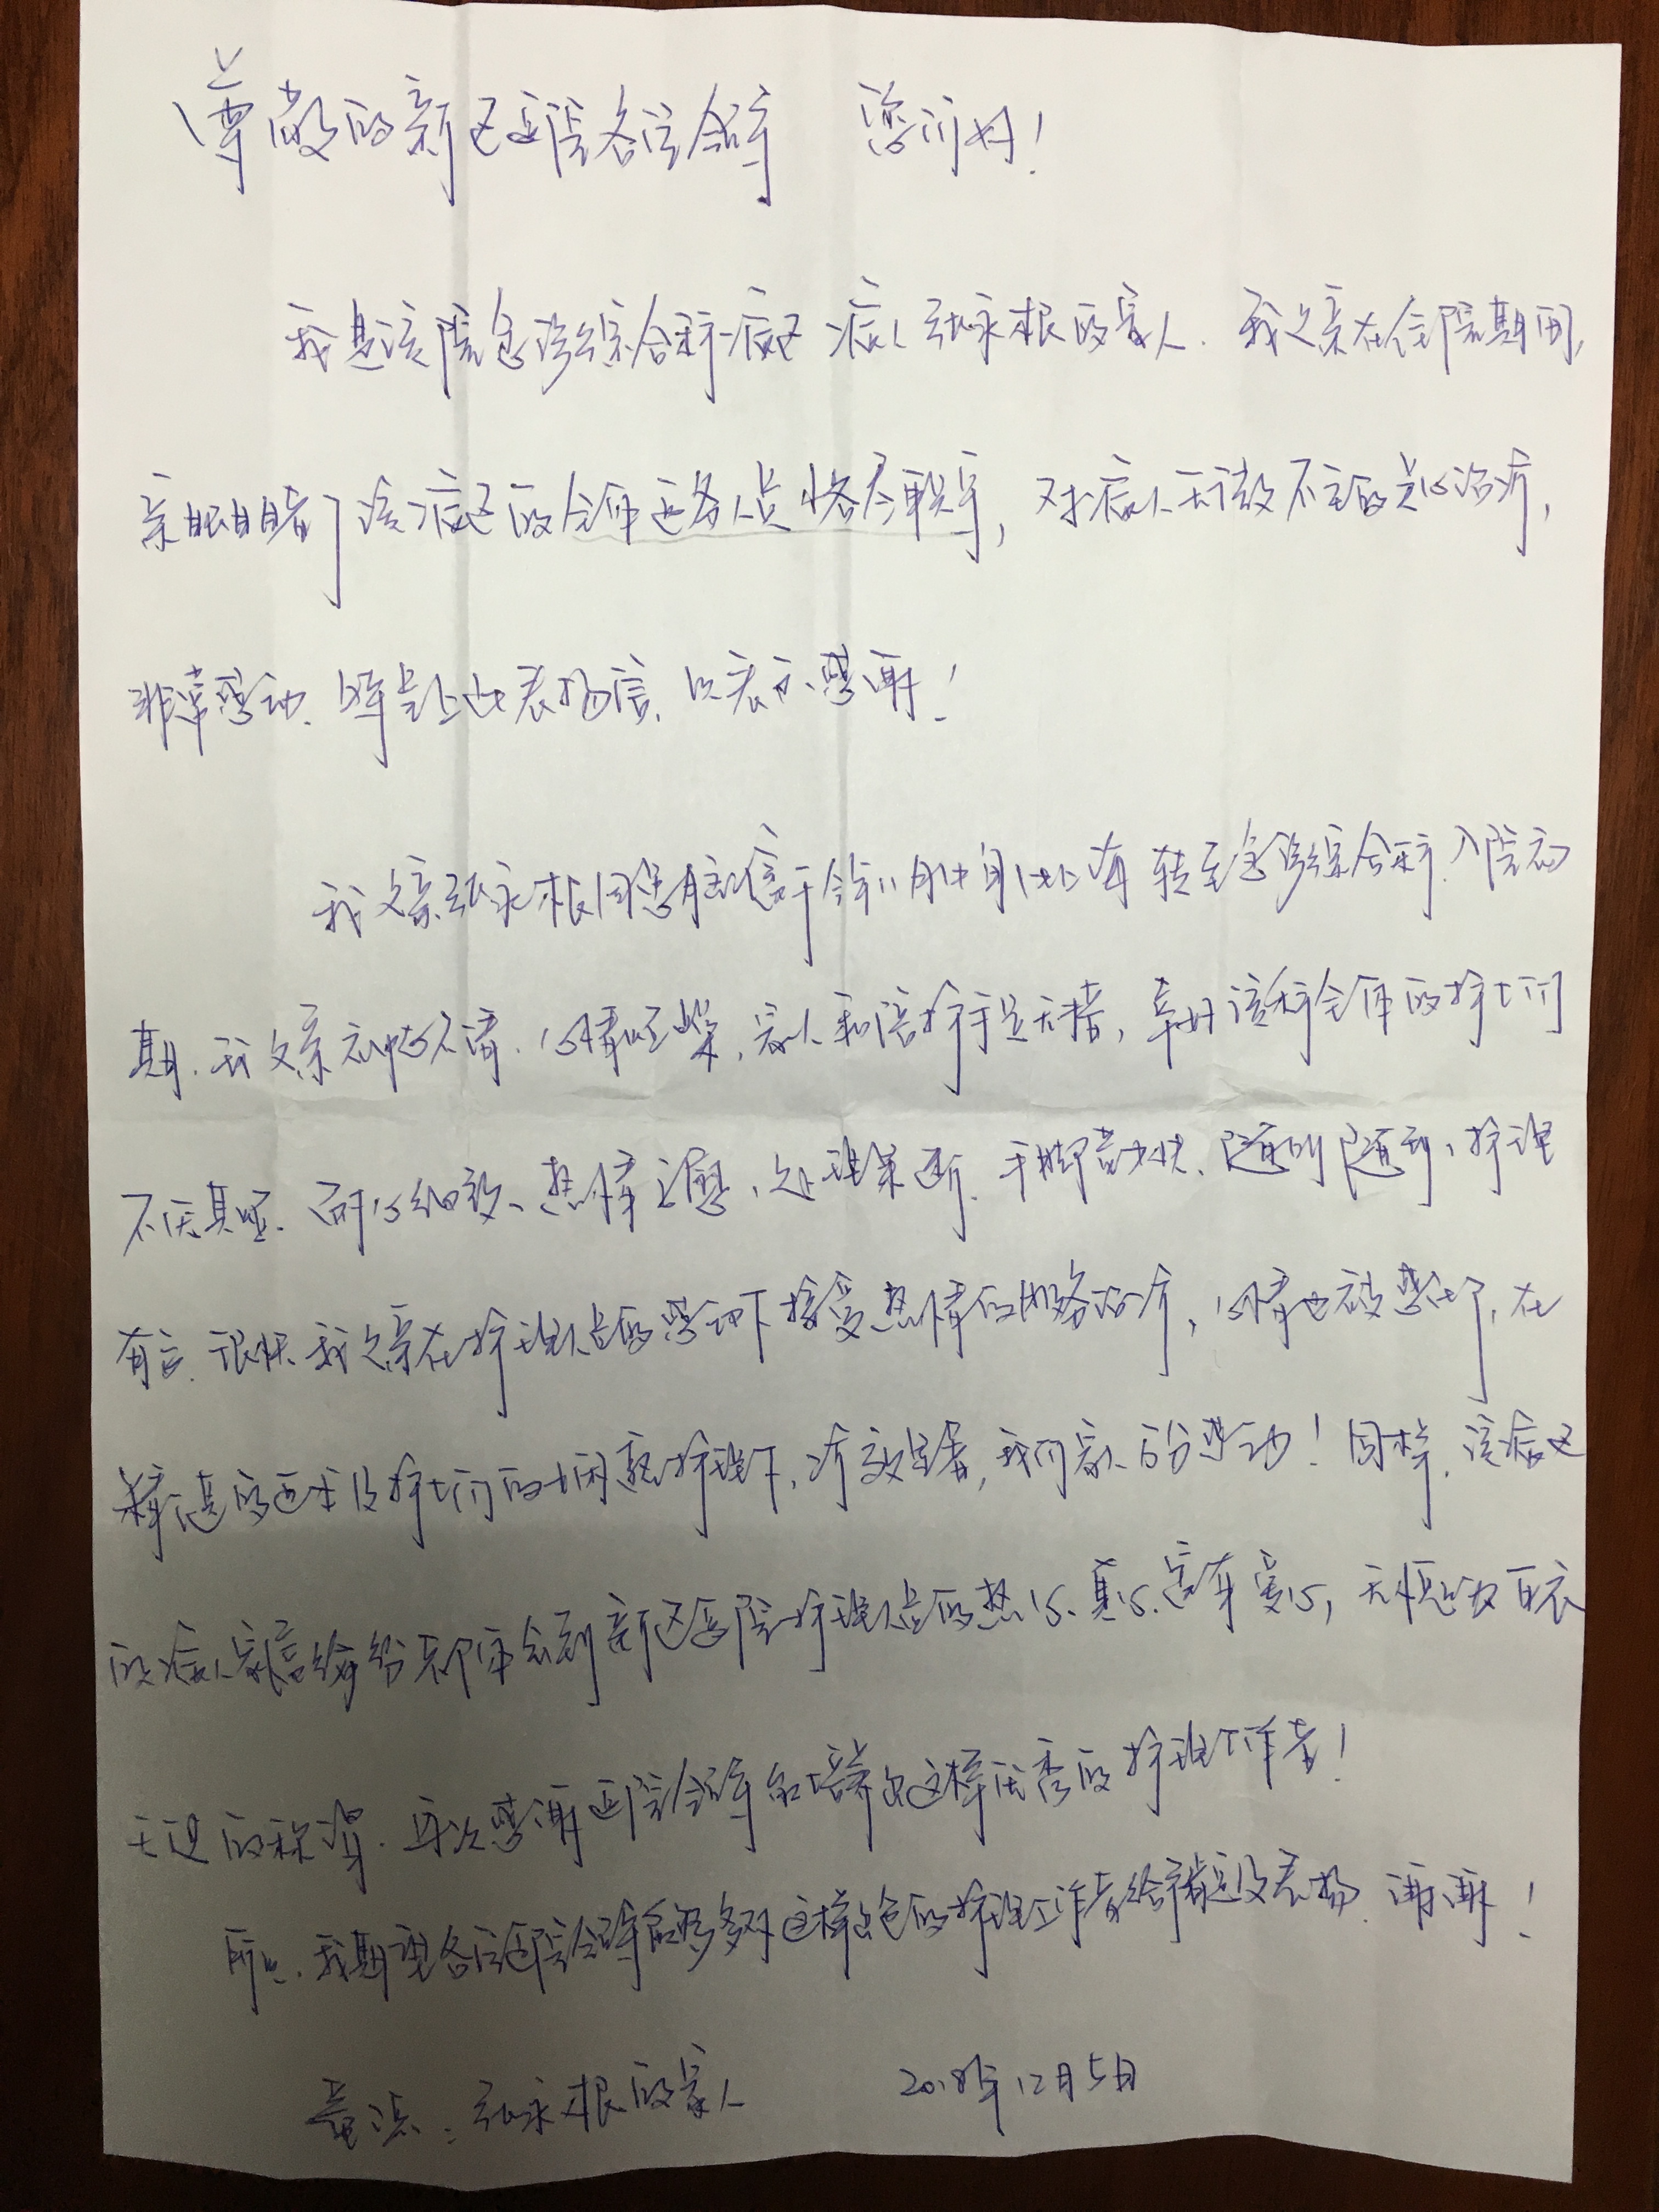 尊敬的新区医院各位领导 您们好！
我是该院急诊综合科病区病人张永根的家人.我父亲在住院期间,
亲眼目睹了该病区的全体医务人员恪尽职守,对病人无微不至的关心治疗,
非常感动.特写上此表扬信,以表示感谢！
我父亲张永根因患脑梗于今年11月中旬 转至急诊综合科.入院初
期.我父亲神志不清.心情烦燥,家人和陪护手足无措,幸好该科全体的护士们
不厌其烦.耐心细致、热情主动、处理果断.手脚勤快.随叫随到、护理
有方.很快我父亲在护理人员的感动下接受热情的服务治疗,心情也被感化了,在
精湛的医术及护士们的娴熟护理下,疗效显著,我们家人万分感动！同样,该病区
的病人家属纷纷都体会到新区医院护理人员的热心、真心、富有爱心,无愧为白衣
天使的称谓.再次感谢医院领导能培养出这样优秀的护理工作者！
所以.我期望各位医院领导能够多对这样出色的护理工作者给予肯定及表扬.谢谢！
张永根的家人 2018年12月5日